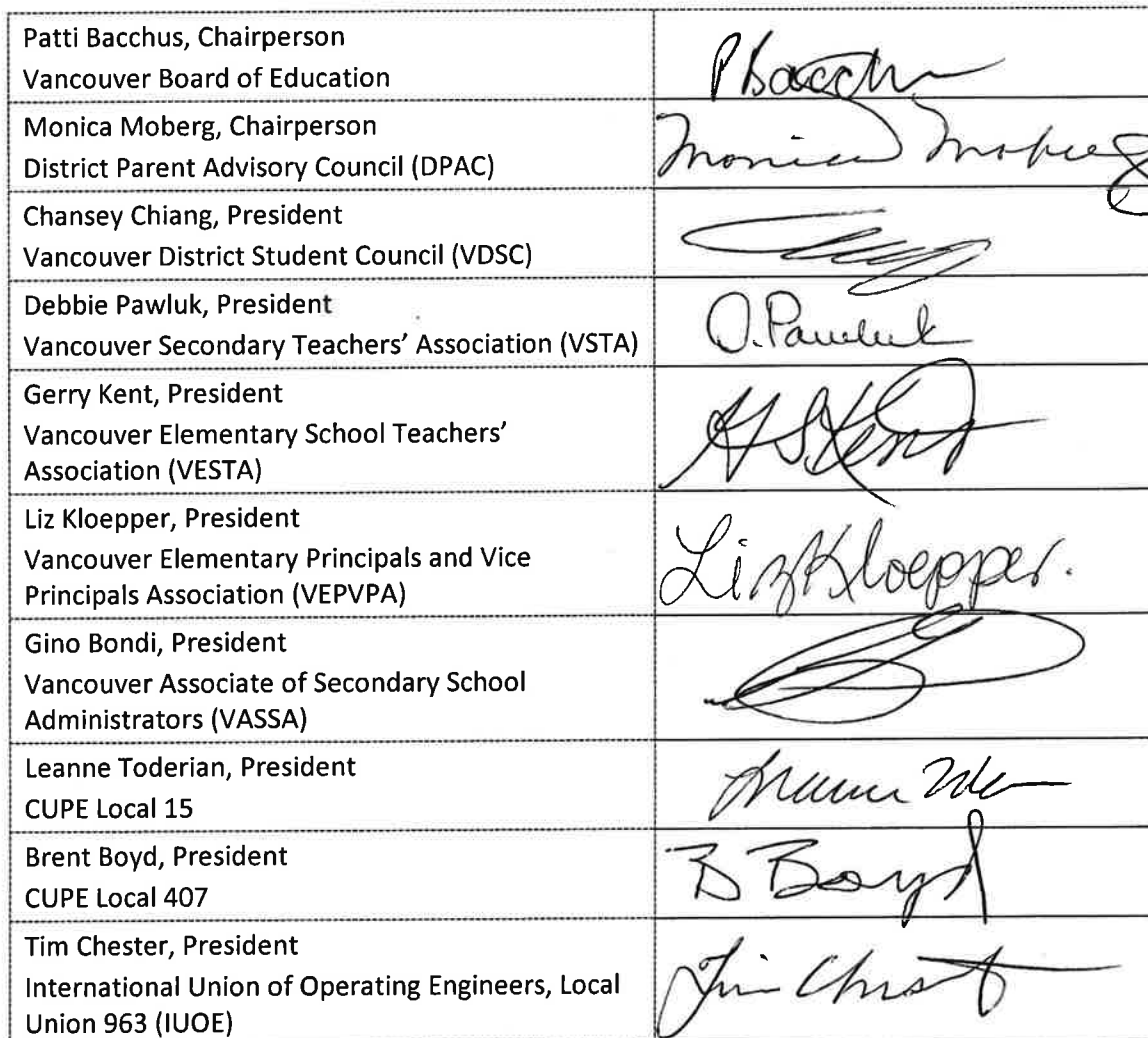 Patti Bacchus, Chairperson
Vancouver Board of Education
P Bacchus
Monica Moberg, Chairperson
District Parent Advisory Council (DPAC)
Monica Moberg
Chansey Chiang, President
Vancouver District Student Council (VDSC)
Debbie Pawluk, President
Vancouver Secondary Teachers' Association (VSTA)
D. Pawluk
Gerry Kent, President
Vancouver Elementary School Teachers'
Association (VESTA)
Kent
Liz Kloepper, President
Vancouver Elementary Principals and Vice
Principals Association (VEPVPA)
Liz Kloepper.
Gino Bondi, President
Vancouver Associate of Secondary School
Administrators (VASSA)
Leanne Toderian, President
CUPE Local 15
Brent Boyd, President
CUPE Local 407
B Boyd
Tim Chester, President
International Union of Operating Engineers, Local
Union 963 (IUOE)
Tim